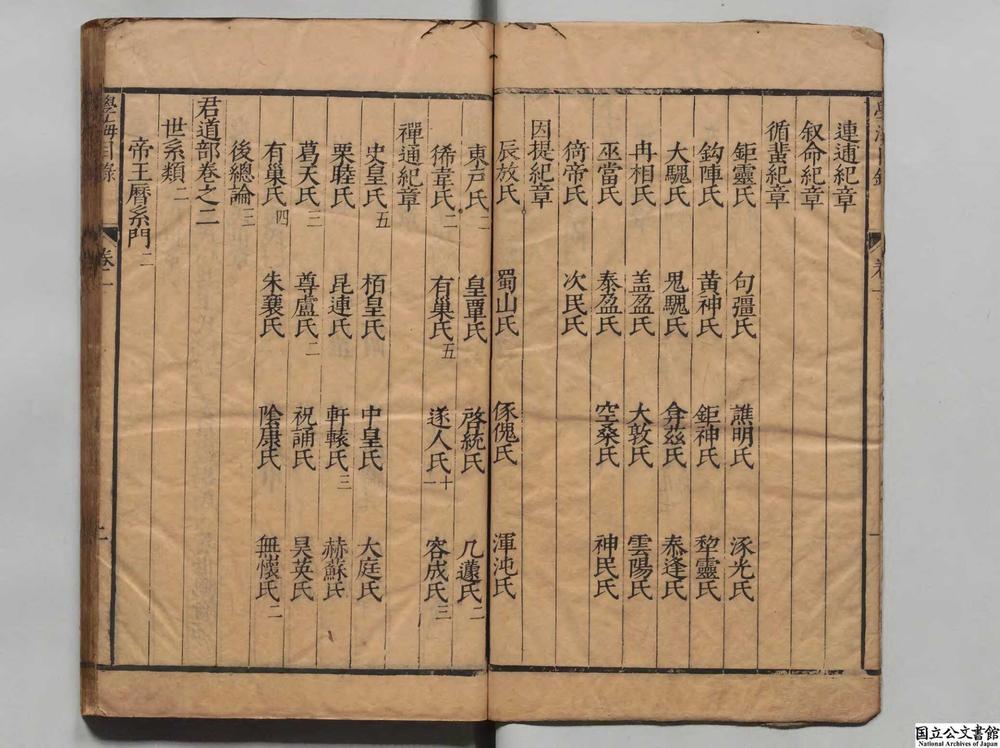 連逋紀章
叙命紀章
循蜚紀章
鉅靈氏 句彊氏 譙明氏 涿光氏
鈎陣氏 黄神氏 鉅神氏 犂靈氏
大騩氏 鬼騩氏 弇茲氏 泰逢氏
冉相氏 盖盈氏 大敦氏 雲陽氏
巫當氏 泰盈氏 空桑氏 神民氏
倚帝氏 次民氏
因提紀章
辰放氏 蜀山氏 豗傀氏 渾沌氏
東户氏二 皇覃氏 啓統氏 几蘧氏二
狶韋氏二 有巢氏五 遂人氏十一 容成氏三
禪通紀章
史皇氏五 栢皇氏 中皇氏 大庭氏
栗睦氏 昆連氏 軒轅氏三 赫蘇氏
葛天氏三 尊盧氏二 祝誦氏 昊英氏
有巢氏四 朱襄氏 陰康氏 無懷氏二
後總論三
君道部卷之二
世系類二
帝王曆系門二
學海目錄 卷一 二
国立公文書館
National Archives of Japan